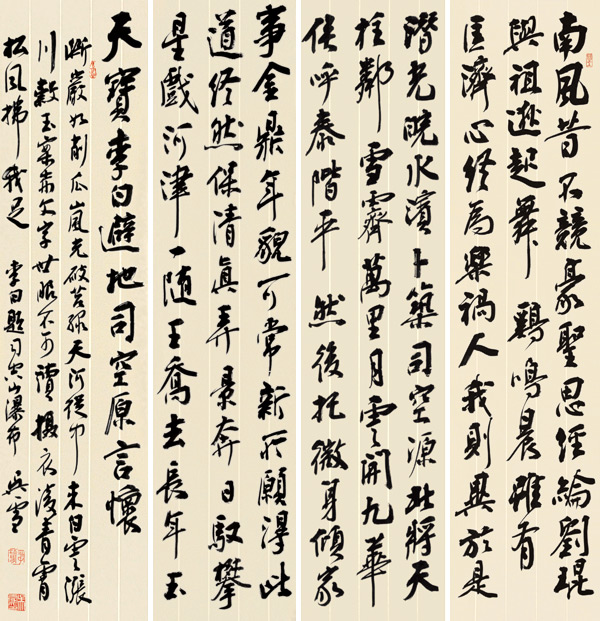 南風昔不競豪聖思經綸劉琨
與祖逖起舞鷄鳴晨雖有
匡濟心終為樂禍人我則異於是
潛光皖水濱卜築司空源北將天
柱鄰雪霽萬里月雲開九華
俟呼泰階平然後托微身傾家
事金鼎年貌可常新所願得此
道終然保清真弄景奔日馭攀
星戲河津一隨王喬去長年玉
天寶李白避地司空原言懷
斷巖如削瓜嵐光破苔綠天河從中来白雲漲
川穀玉案赤文字世眼不可讀攝衣凌青霄
松風拂我足 李白題司空山瀑布 吳雪